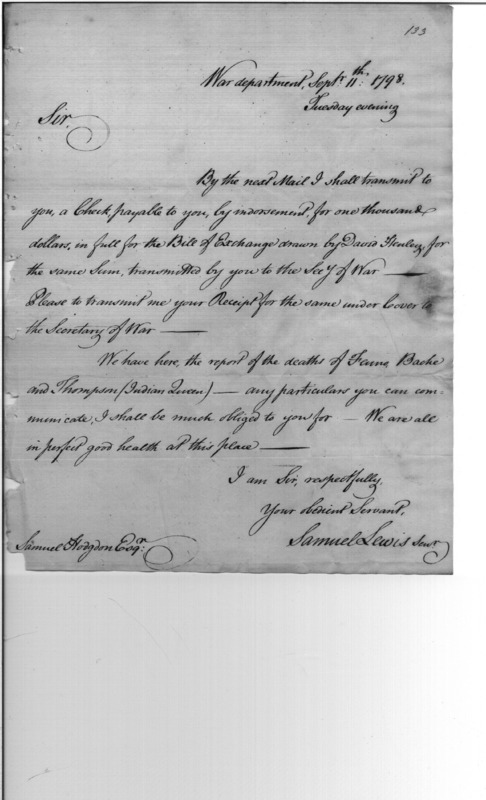 133
War department, Septr. 11th: 1798.
Tuesday evening
Sir,
By the next Mail I shall transmit to
you, a Check, payable to you, by indorsement, for one thousand
dollars, in full for the Bill of Exchange drawn by David Henley, for
the same Sum, transmitted by you to the Secy of War —
Please to transmit me your Receipt for the same under Cover to
the Secretary of War —
We have here, the report of the deaths of Fenno, Bache
and Thompson (Indian Queen) — any particulars you can com-
municate, I shall be much obliged to you for — We are all
in perfect good health at this place —
I am Sir, respectfully,
Your obedient Servant,
Samuel Lewis Senr
Samuel Hodgdon Esqr.